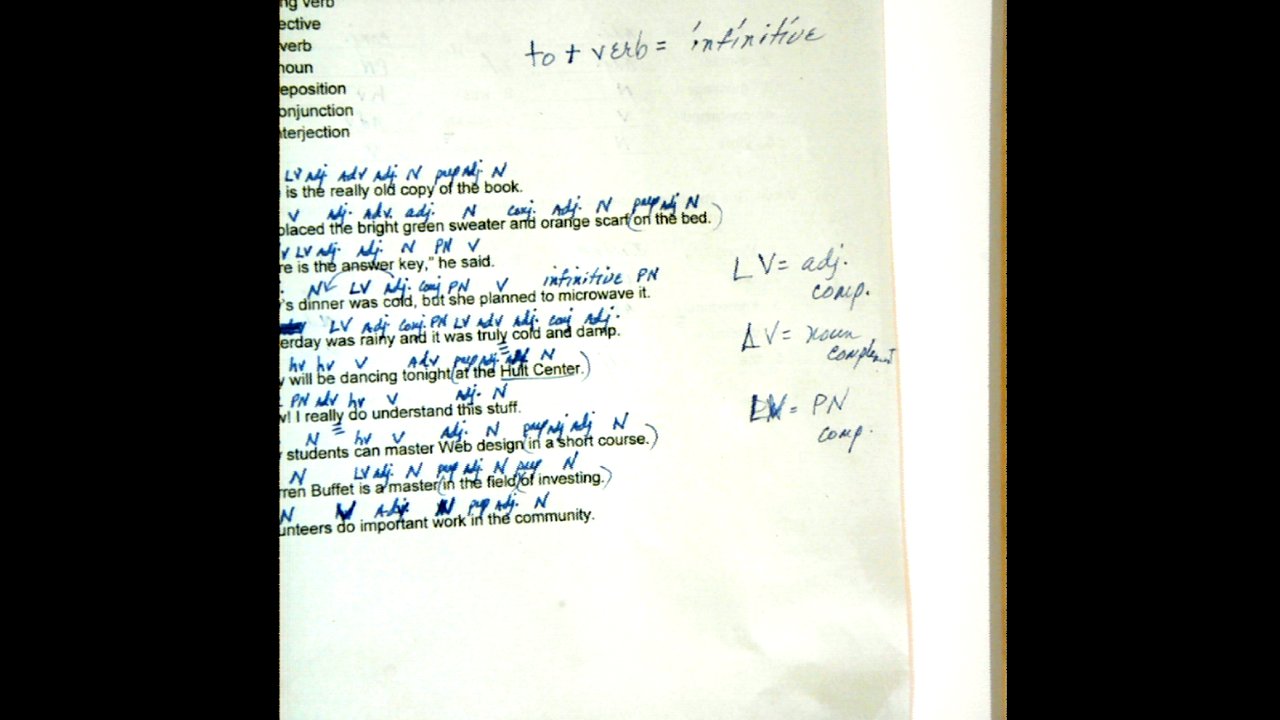 ng verb
ective
verb
noun
eposition
onjunction
terjection
to + verb = infinitive
LV adj. Adv adj. N prep adj. N
is the really old copy of the book.
V adj. adv. adj. N conj. Adj. N prep adj N
placed the bright green sweater and orange scarf (on the bed.)
V LV adj. Adj. N PN V
re is the answer key," he said.
N LV Adj. conj PN V infinitive PN
's dinner was cold, but she planned to microwave it.
LV Adj conj. PN LV adv Adj. conj Adj.
erday was rainy and it was truly cold and damp.
hv hv V Adv prep adj. N
will be dancing tonight (at the Hult Center.)
PN adv hv V adj. N
w! I really do understand this stuff.
N hv V Adj. N prep adj adj N
students can master Web design (in a short course.)
N LV adj. N prep adj. N prep N
ren Buffet is a master (in the field) (of investing.)
N V Adj. N prep adj. N
unteers do important work in the community.
LV = adj.
comp.
LV = noun
complement
LV = PN
comp.